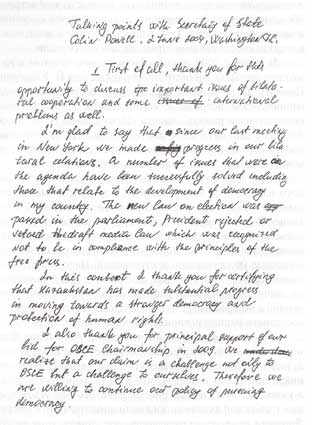 Talking points with Secretary of State
Colin Powell, 2 June 2004, Washington DC.
1 First of all, thank you for this
opportunity to discuss issues of bilate-
ral cooperation and some international
problems as well.
I'm glad to say that since our last meeting
in New York we made progress in our bila
teral relations. A number of issues that were on
the agenda have been successfully solved including
those that relate to the development of democracy
in my country. The new law on election was
passed in the parliament, President rejected or
vetoed the draft media law which was recognized
not to be in compliance with the principles of the
free press.
In this context I thank you for certifying
that Kazakhstan has made substantial progress
in moving towards a stronger democracy and
protection of human rights.
I also thank you for principal support of our
bid for OSCE Chairmanship in 2009. We
realize that our claim is a challenge not only to
OSCE but a challenge to ourselves. Therefore we
are willing to continue our policy of pursuing
democracy